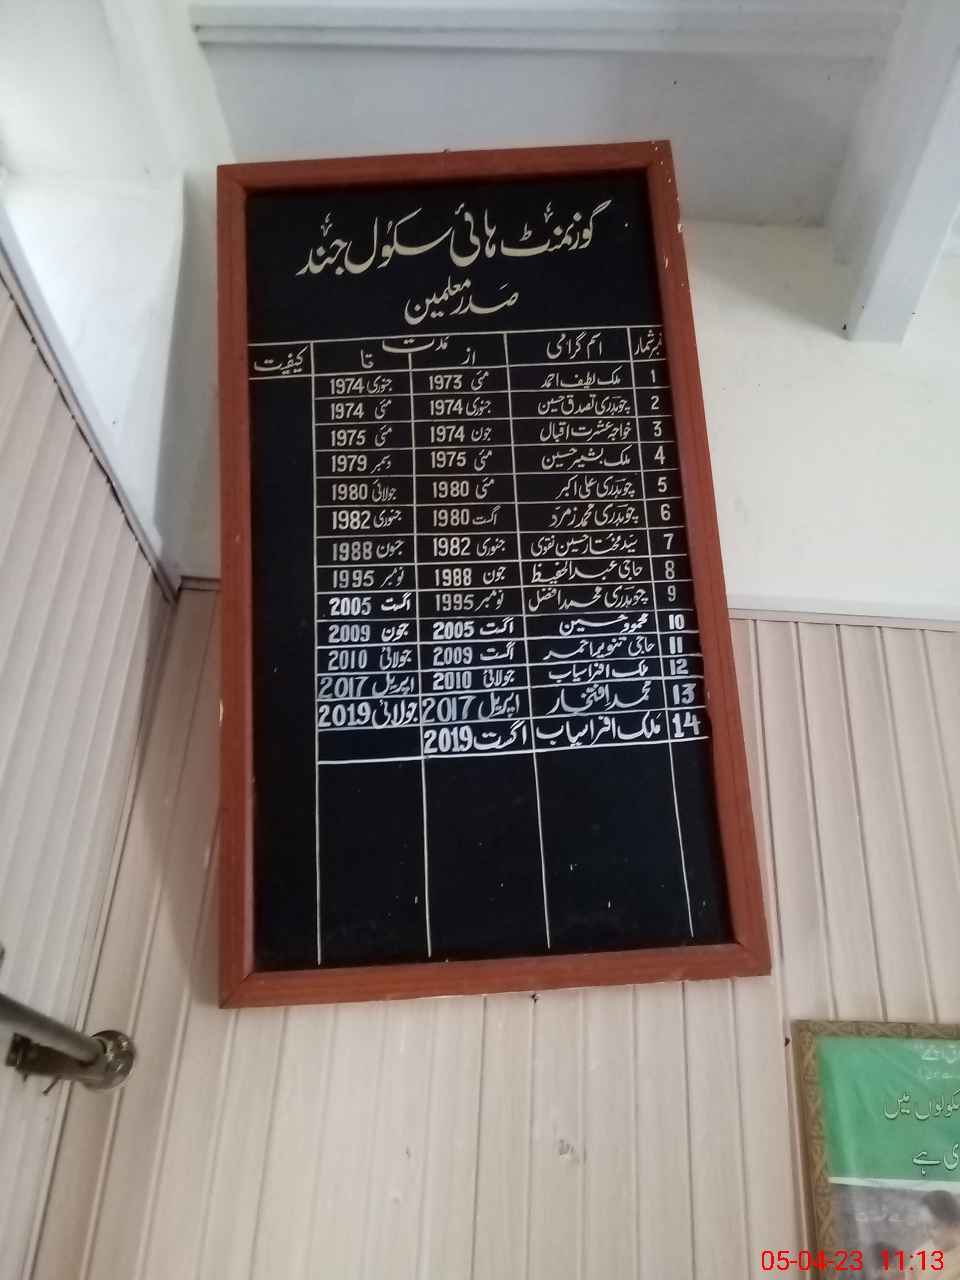 گورنمنٹ ہائی سکول جنڈ
صدر معلمین
نمبر شمار اسم گرامی مدت کیفیت
از تا
1 ملک لطیف احمد مئی 1973 جنوری 1974
2 چوہدری تصدق حسین جنوری 1974 مئی 1974
3 خواجہ عشرت اقبال جون 1974 مئی 1975
4 ملک بشیر حسین مئی 1975 دسمبر 1979
5 چوہدری علی اکبر مئی 1980 جولائی 1980
6 چوہدری محمد زمرد اگست 1980 جنوری 1982
7 سید مختار حسین نقوی جنوری 1982 جون 1988
8 حاجی عبدالحفیظ جون 1988 نومبر 1995
9 چوہدری محمد افضل نومبر 1995 اگست 2005
10 محمود حسین اگست 2005 جون 2009
11 حاجی تنویر احمد اگست 2009 جولائی 2010
12 ملک افراسیاب جولائی 2010 اپریل 2017
13 محمد افتخار اپریل 2017 جولائی 2019
14 ملک افراسیاب اگست 2019
سکولوں میں
ہے
05-04-23 11:13